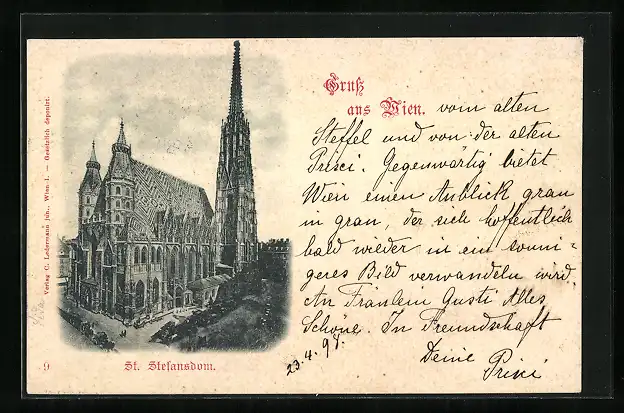 Gruß
aus Wien. vom alten
Steffel und von der alten
Prisci. Gegenwärtig bietet
Wien einen Anblick grau
in grau, der sich hoffentlich
bald wieder in ein sonni-
geres Bild verwandeln wird.
An Fräulein Gusti Alles
Schöne. In Freundschaft
Deine Prisci
23.4.98.
Verlag C. Ledermann jun., Wien I. – Gesetzlich deponirt.
9 St. Stefansdom.